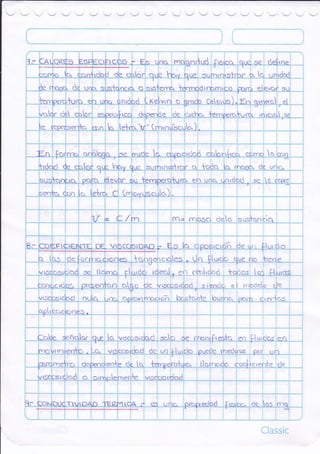 7.- CALORES ESPECIFICOS :- Es una magnitud física que se define
como la cantidad de calor que hay que suministrar a la unidad
de masa de una sustancia o sistema termodinamico para elevar su
temperatura en una unidad (Kelvin o grado Celsius). En general, el
valor del calor especifico depende de dicha temperatura inicial, se
le representa con la letra
(minúscula).
En forma análoga, se mide la capacidad calorifica como la can
tidad de calor que hay que suministrar a toda la masa de una
sustancia para elevar su temperatura en una unidad, se le repre
senta con la letra C (mayuscula).
= C/m m= masa de la sustancia
8- COEFICIENTE DE VISCOSIDAD :- Es la oposición de un fluido
a las deformaciones tangenciales. Un fluido que no tiene
viscosidad se llama fluido ideal, en realidad todos los fluidos
conocidos presentan algo de viscosidad, siendo el modelo de
viscosidad nula una aproximación bastante buena para ciertas
aplicaciones.
Cabe señalar que la viscosidad solo se manifiesta en fluidos en
movimiento. La viscosidad de un fluido puede medirse por un
parametro dependiente de la temperatura llamado coeficiente de
viscosidad o simplemente viscosidad
9- CONDUCTIVIDAD TERMICA :- es una propiedad física de los ma
Classic